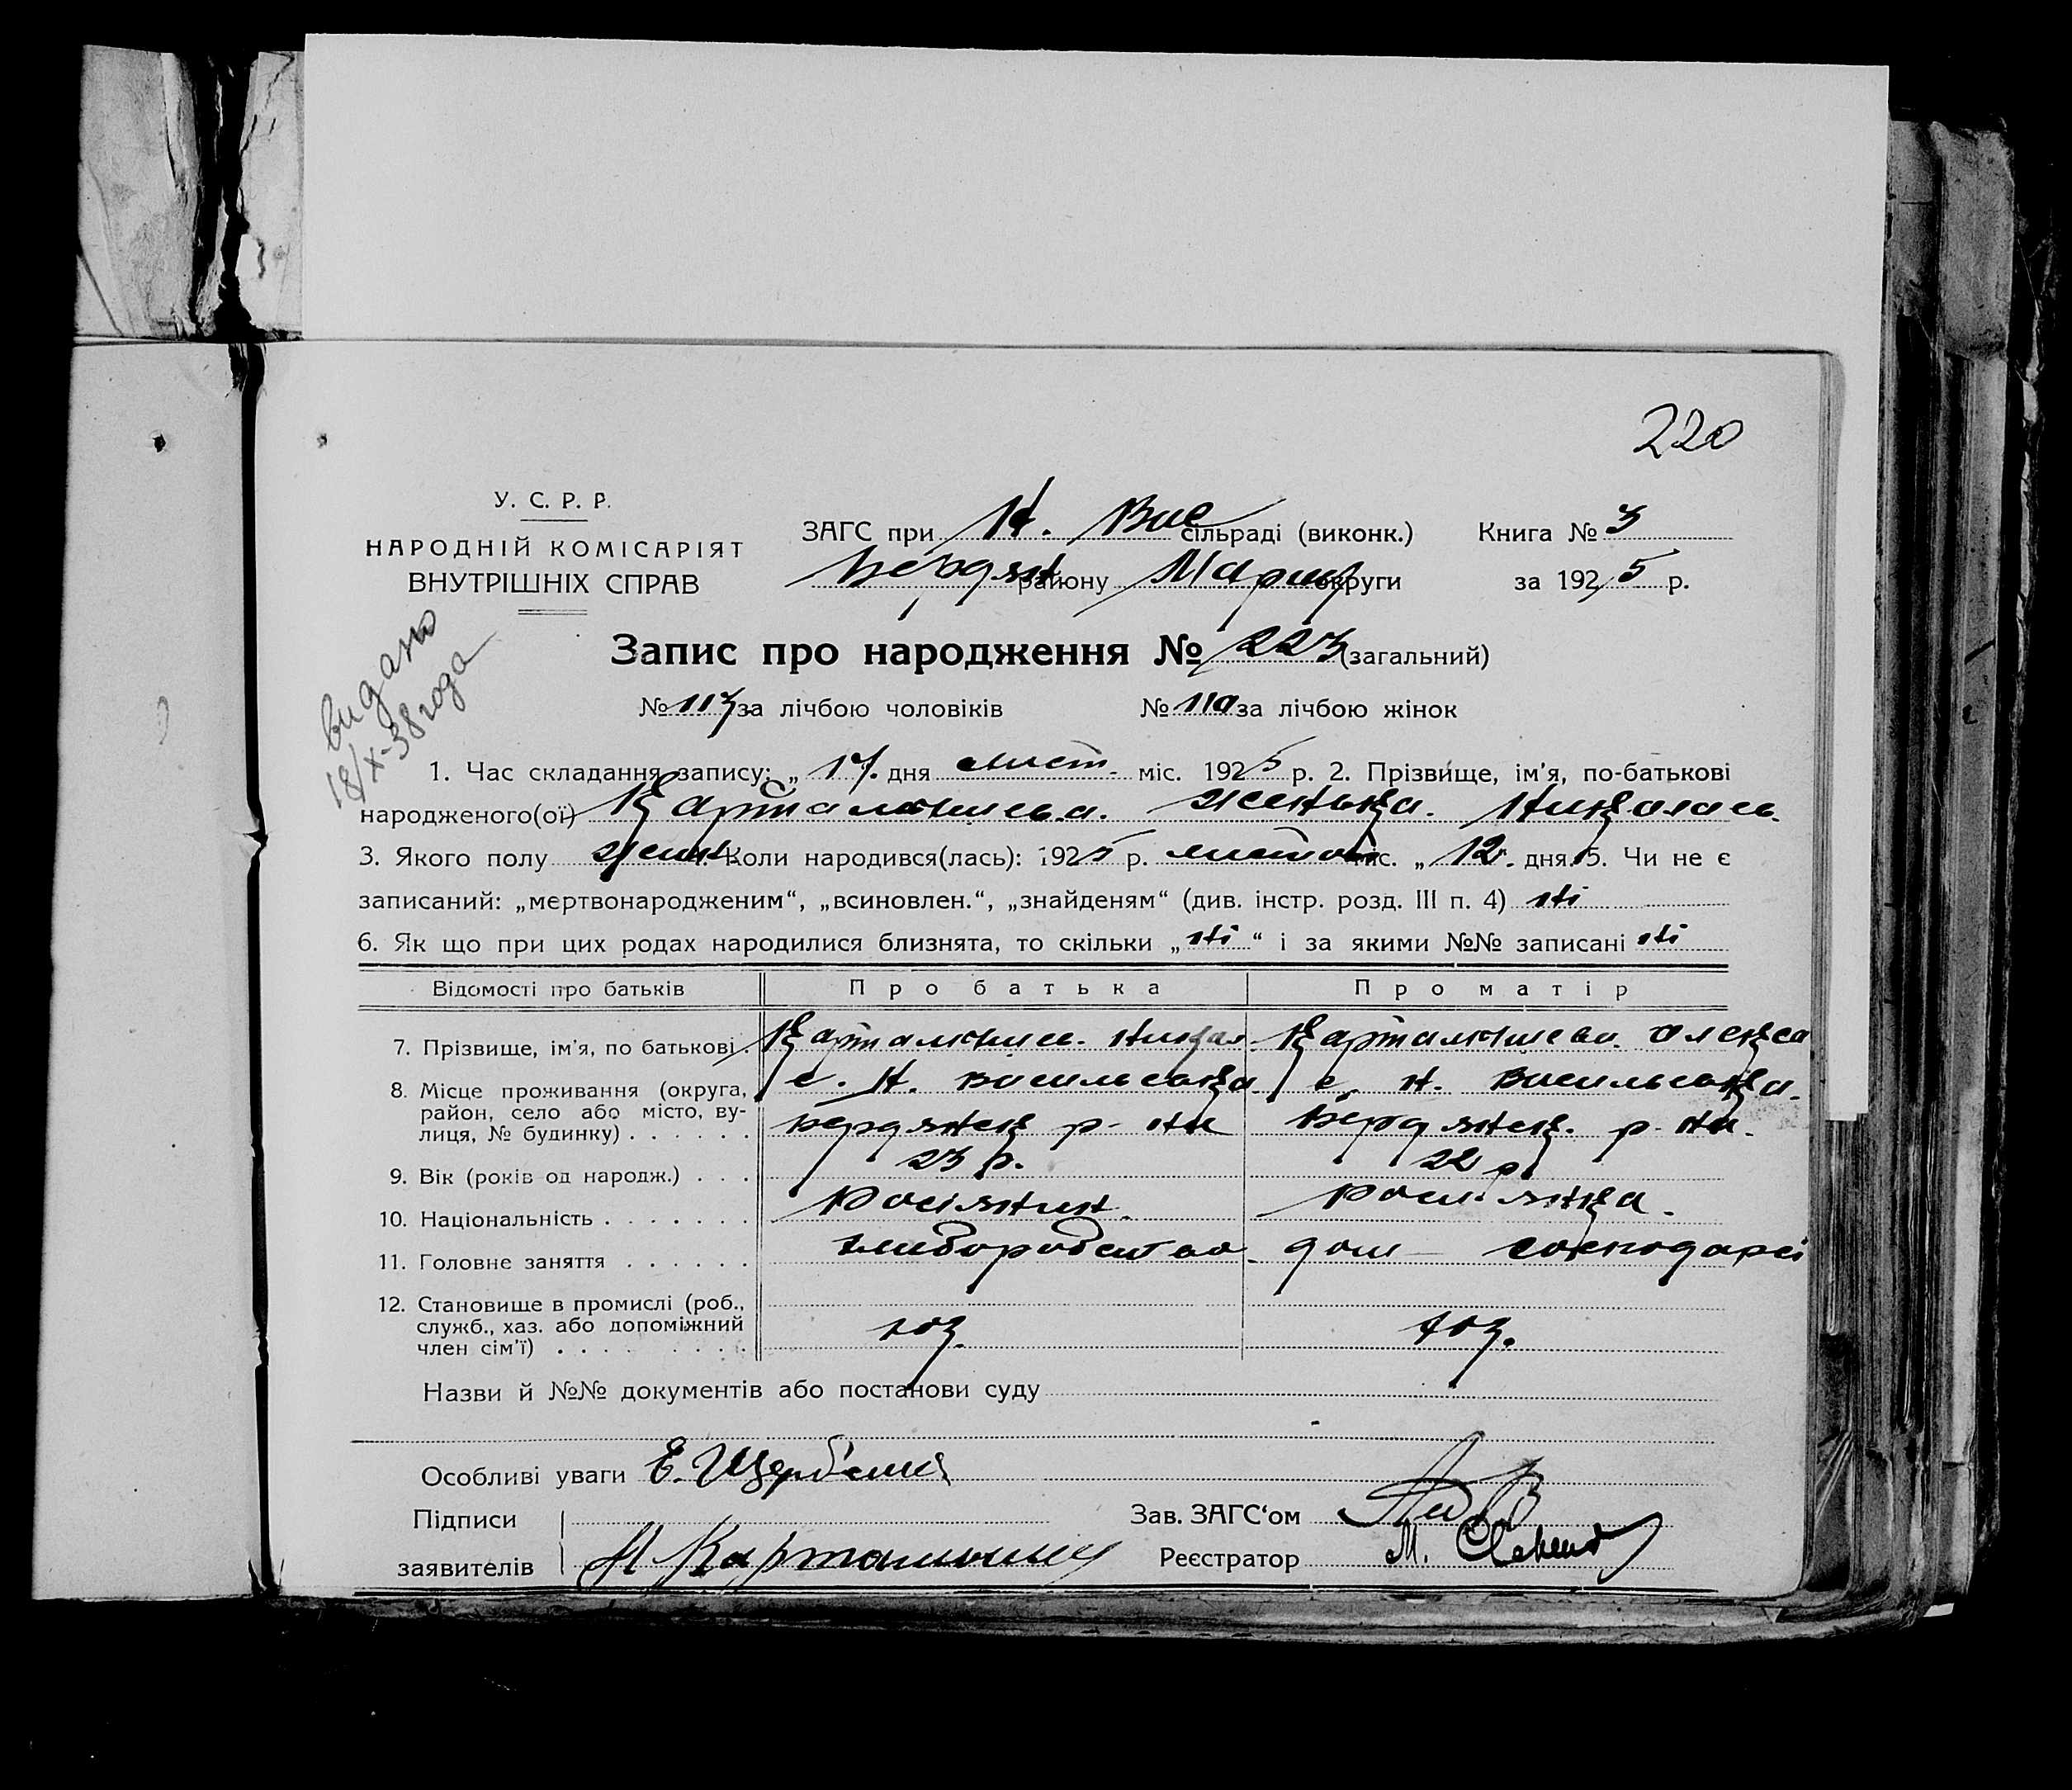 220
У. С. Р. Р.
НАРОДНІЙ КОМІСАРІЯТ
ВНУТРІШНІХ СПРАВ
ЗАГС при Н. Вас сільраді (виконк.) Книга № 3
Бердян району Маріуп округи за 1925 р.
видано
18/X-38 года
Запис про народження № 223 (загальний)
№ 113 за лічбою чоловіків № 110 за лічбою жінок
1. Час складання запису: „ 17. дня лист. міс. 1925 р. 2. Прізвище, ім'я, по-батькові
народженого(ої) Карталишева. Женька. Николаев.
3. Якого полу жін. 4. Коли народився(лась): 1925 р. листоп міс. „ 12. дня. 5. Чи не є
записаний: „мертвонародженим“, „всиновлен.“, „знайденям“ (див. інстр. розд. III п. 4) ні
6. Як що при цих родах народилися близнята, то скільки „ ні “ і за якими №№ записані ні
Відомості про батьків Про батька Про матір
7. Прізвище, ім'я, по батькові. Никол. Олекса
8. Місце проживання (округа, с. Н. Васильевка с. Н. Васильевка.
район, село або місто, ву- Бердянськ р-ни Бердянськ. р-ни.
лиця, № будинку) . . . . . .
9. Вік (років од народж.) . . . 23 р. 22 р
10. Національність . . . . . . . Росіянин. Росіянка.
11. Головне заняття . . . . . . хліборобство. дом господарсі
12. Становище в промислі (роб.,
служб., хаз. або допоміжний хоз. хоз.
член сім'ї) . . . . . . . . .
Назви й №№ документів або постанови суду
Особливі уваги Е. Щербаків
Підписи Зав. ЗАГС‘ом
заявителів Н Реєстратор М.